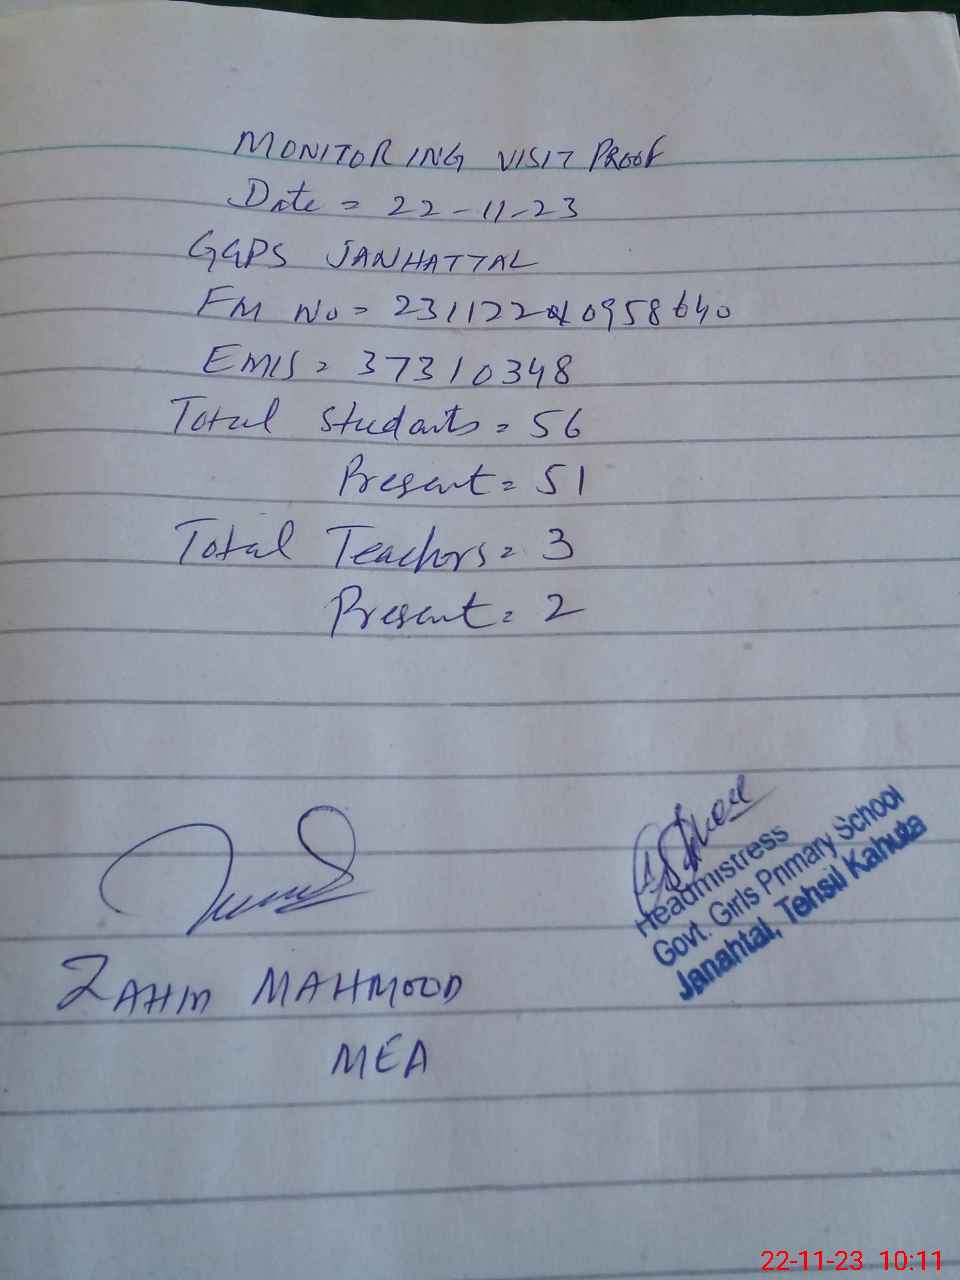 MONITORING VISIT PROOF
Date = 22-11-23
GGPS JANHATTAL
FM No = 2311220958640
EMIS = 37310348
Total Students = 56
Present = 51
Total Teachers = 3
Present = 2
Headmistress
Govt. Girls Primary School
Janahtal, Tehsil Kahuta
ZAHID MAHMOOD
MEA
22-11-23 10:11